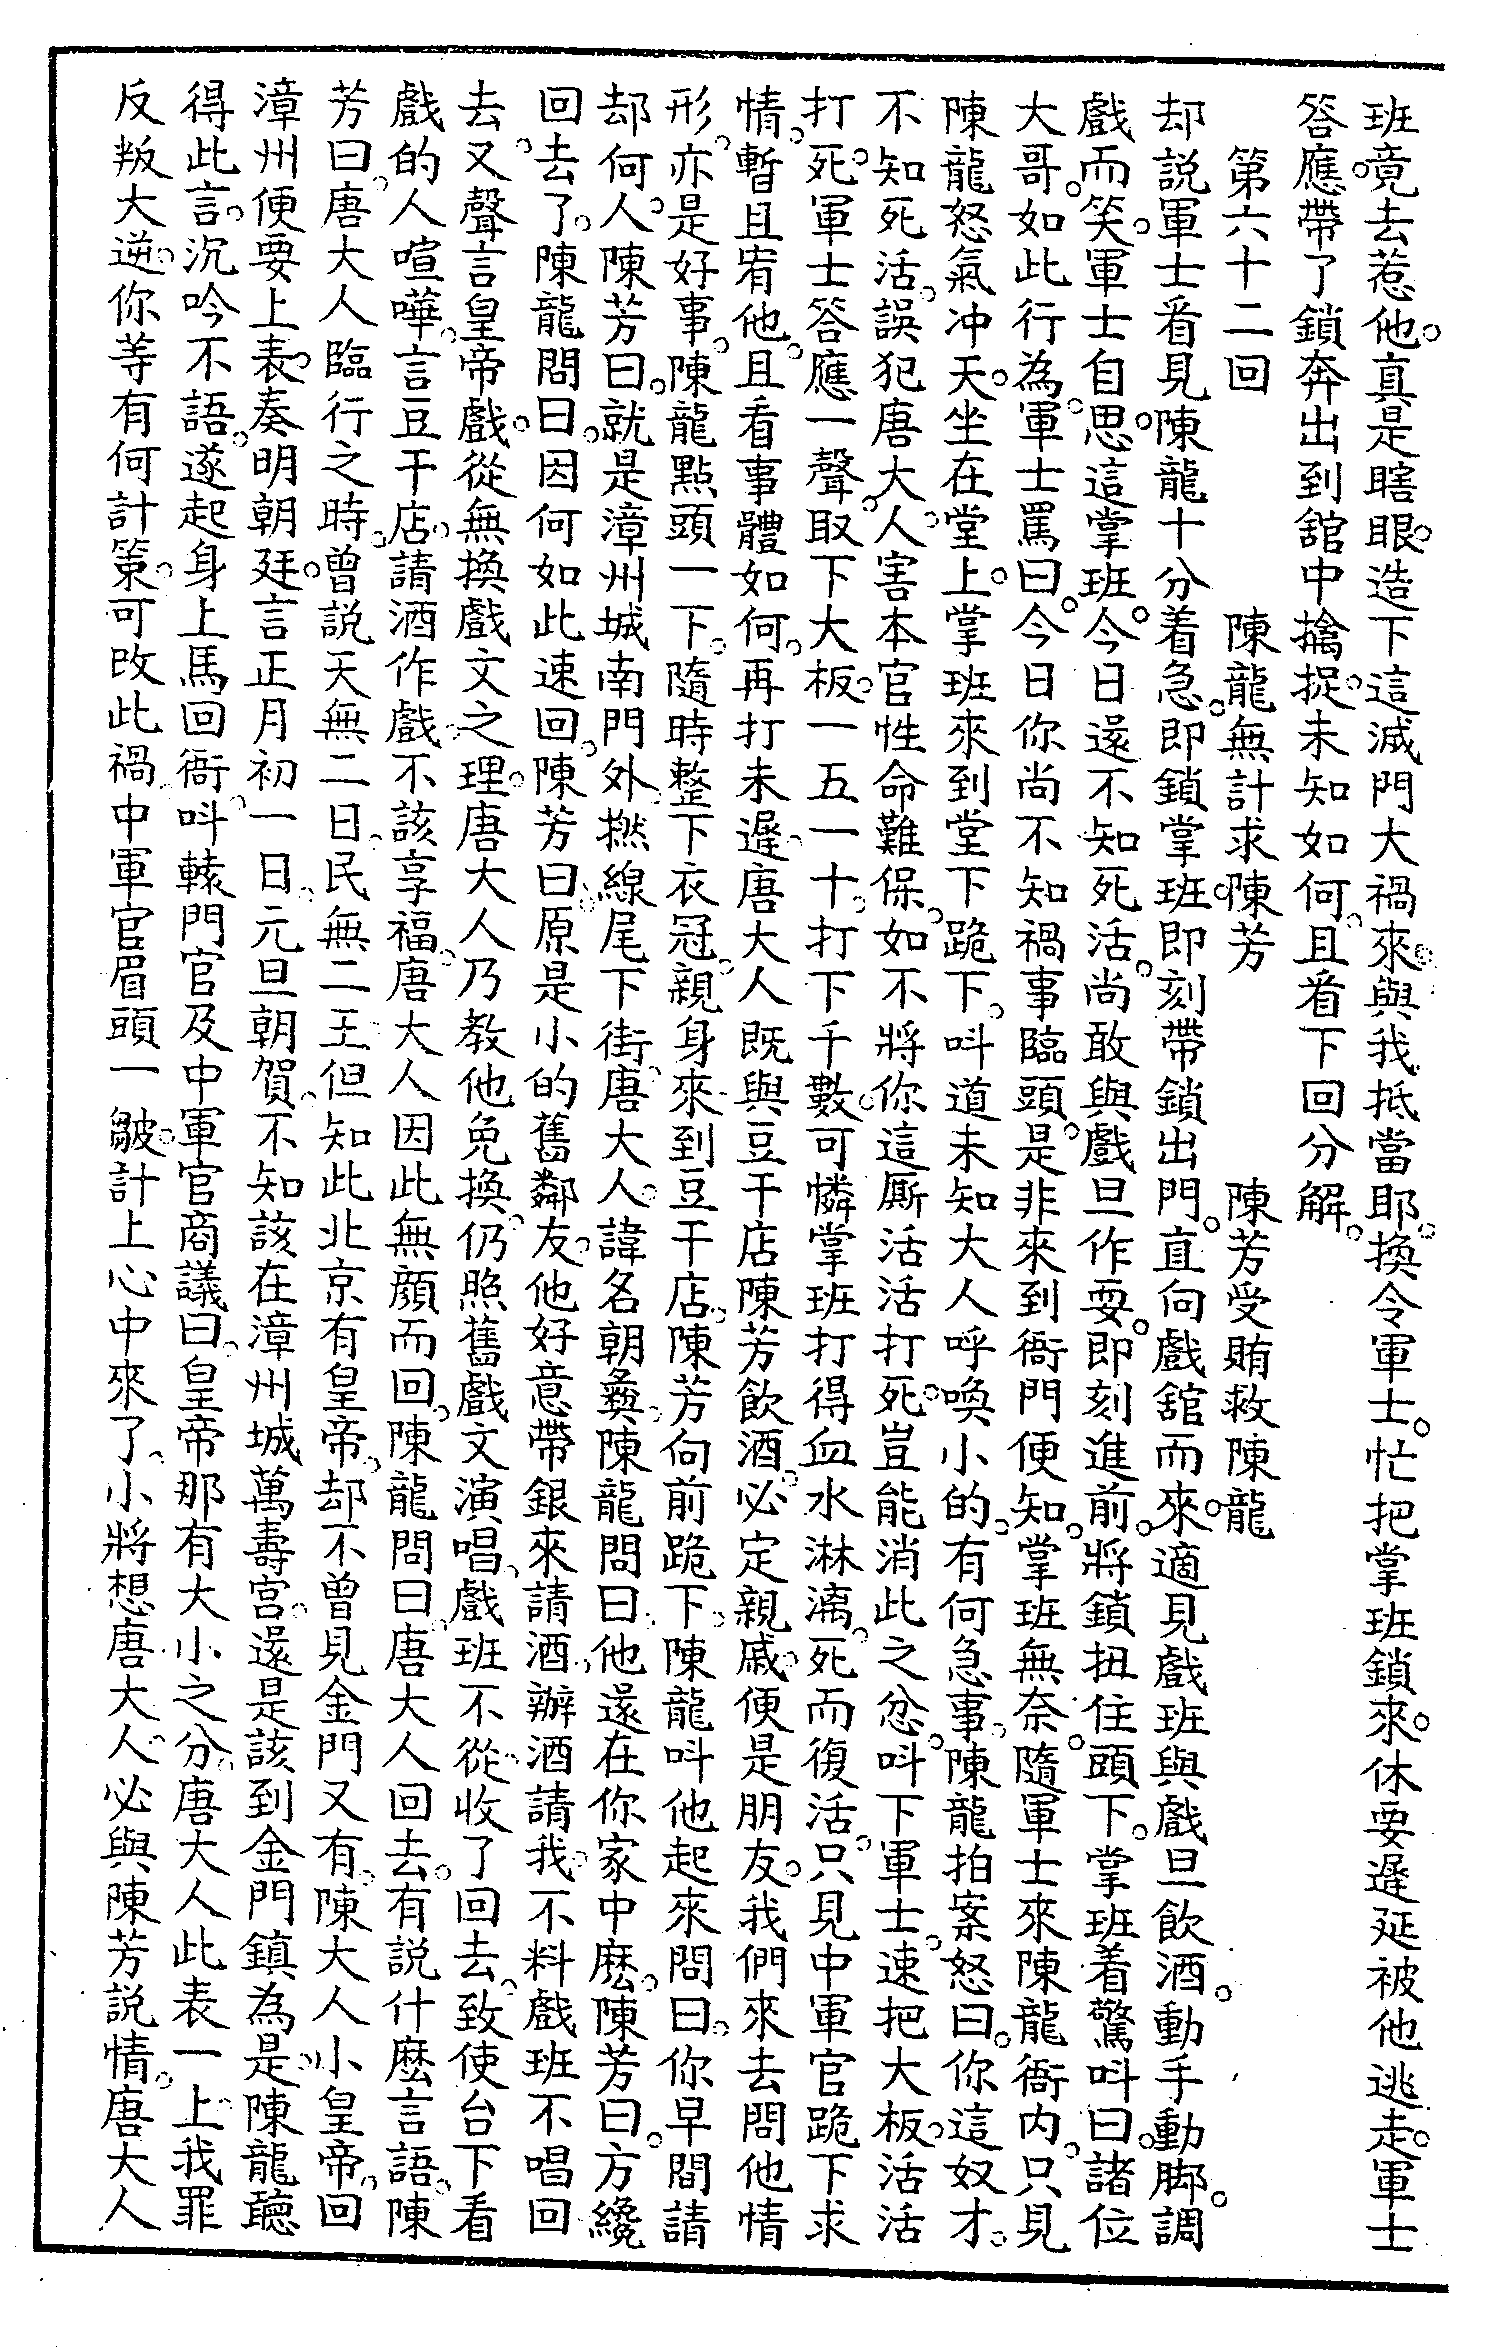 班。竟去惹他。真是瞎眼。造下這滅門大禍來。與我抵當耶。換令軍士。忙把掌班鎖來。休要遲延被他逃走。軍士
答應。帶了鎖奔出到舘中擒捉。未知如何。且看下回分解。
第六十二回　陳龍無計求陳芳　陳芳受賄救陳龍
却説軍士看見陳龍十分着急。即鎖掌班。即刻帶鎖出門。直向戲舘而來。適見戲班與戲旦飲酒。動手動脚。調
戲而笑。軍士自思。這掌班。今日還不知死活。尚敢與戲旦作耍。即刻進前。將鎖扭住頭下。掌班着驚呌曰。諸位
大哥。如此行為。軍士罵曰。今日你尚不知禍事臨頭。是非來到衙門便知。掌班無奈。隨軍士來陳龍衙内。只見
陳龍怒氣冲天。坐在堂上。掌班來到堂下跪下。呌道未知大人呼喚小的。有何急事。陳龍拍案怒曰。你這奴才。
不知死活。誤犯唐大人。害本官性命難保。如不將你這厮活活打死。豈能消此之忿。呌下軍士。速把大板。活活
打死。軍士答應一聲。取下大板。一五一十。打下千數。可憐掌班打得血水淋漓。死而復活。只見中軍官跪下求
情。暫且宥他。且看事體如何。再打未遲。唐大人既與豆干店陳芳飲酒。必定親戚。便是朋友。我們來去問他情
形。亦是好事。陳龍點頭一下。隨時整下衣冠。親身來到豆干店。陳芳向前跪下。陳龍呌他起來問曰。你早間請
却何人。陳芳曰。就是漳州城南門外撚線尾下街。唐大人。諱名朝彝。陳龍問曰。他還在你家中麽。陳芳曰。方纔
回去了。陳龍問曰。因何如此速回。陳芳曰。原是小的舊鄰友。他好意帶銀來請酒。辦酒請我。不料戲班不唱回
去。又聲言皇帝戲。從無換戲文之理。唐大人乃教他免換。仍照舊戲文演唱。戲班不從。收了回去。致使台下看
戲的人喧嘩。言豆干店。請酒作戲。不該享福。唐大人因此無顔而回。陳龍問曰。唐大人回去。有説什麽言語。陳
芳曰。唐大人臨行之時。曾説天無二日。民無二王。但知此北京有皇帝。却不曾見金門又有。陳大人小皇帝。回
漳州便要上表。奏明朝廷。言正月初一日。元旦朝賀。不知該在漳州城萬壽宫。還是該到金門鎮為是。陳龍聽
得此言。沉吟不語。遂起身上馬回衙。呌轅門官及中軍官商議曰。皇帝那有大小之分。唐大人此表一上。我罪
反叛大逆。你等有何計策。可改此禍。中軍官眉頭一皺。計上心中來了。小將想唐大人。必與陳芳説情。唐大人